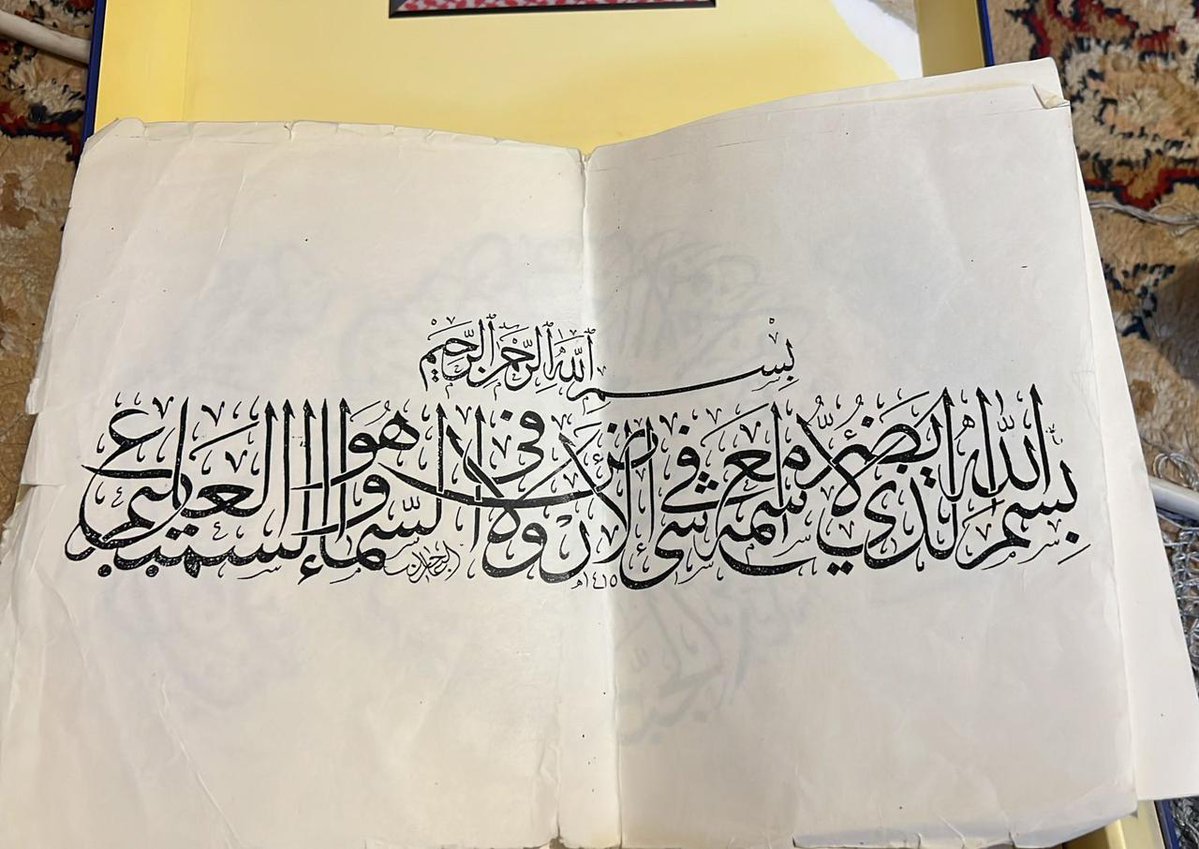 بِسْمِ اللّٰهِ الرَّحْمٰنِ الرَّحِيْمِ
بِسْمِ اللّٰهِ الَّذِي لَا يَضُرُّ مَعَ اسْمِهِ شَيْءٌ فِي الْأَرْضِ وَلَا فِي السَّمَاءِ وَهُوَ السَّمِيعُ الْعَلِيمُ
١٤١٥هـ